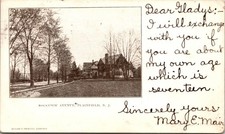 Dear Gladys;-
I will exchange
with you if
you are about
my own age
which is
seventeen.
Sincerely yours
Mary E. Mair
PLAINFIELD, N. J.